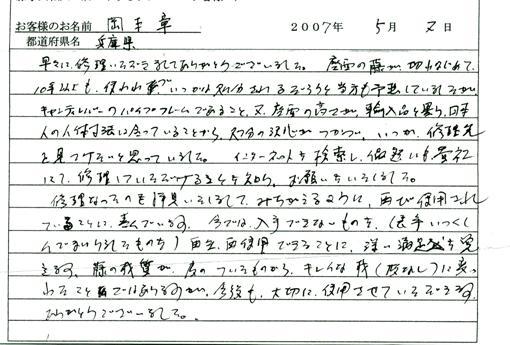 お客様のお名前 岡本 章 2007年 5月 2日
都道府県名 兵庫県
早々に、修理いただきましてありがとうございました。 座面の藤が切れはじめて、
10年以上も、使われず、いつかは処分されるだろうと当方も予想していましたが
キャンティレバーのパイプフレームであること、又、座面の高さが、輸入品と異り、日本
人の人体寸法に合っていることから、処分の決心がつかづ、いつか、修理先
を見つけたいと思っていました。 インターネットを検索し、偶然にも貴社
にて、修理していただけることを知り、お願いをいたしました。
修理なったものを拝見いたしまして、みちがえるように、再び使用され
ていることに、喜んでいます。 今では、入手できないものを、(長年いつくし
んでまいりましたものを) 再生、再使用できることに、深い満足感を覚
えます。 藤の材質が、皮のついたものから、キレイな材(皮なし)に変
ったことではありますが、今後も、大切に、使用させていただきます。
ありがとうございました。